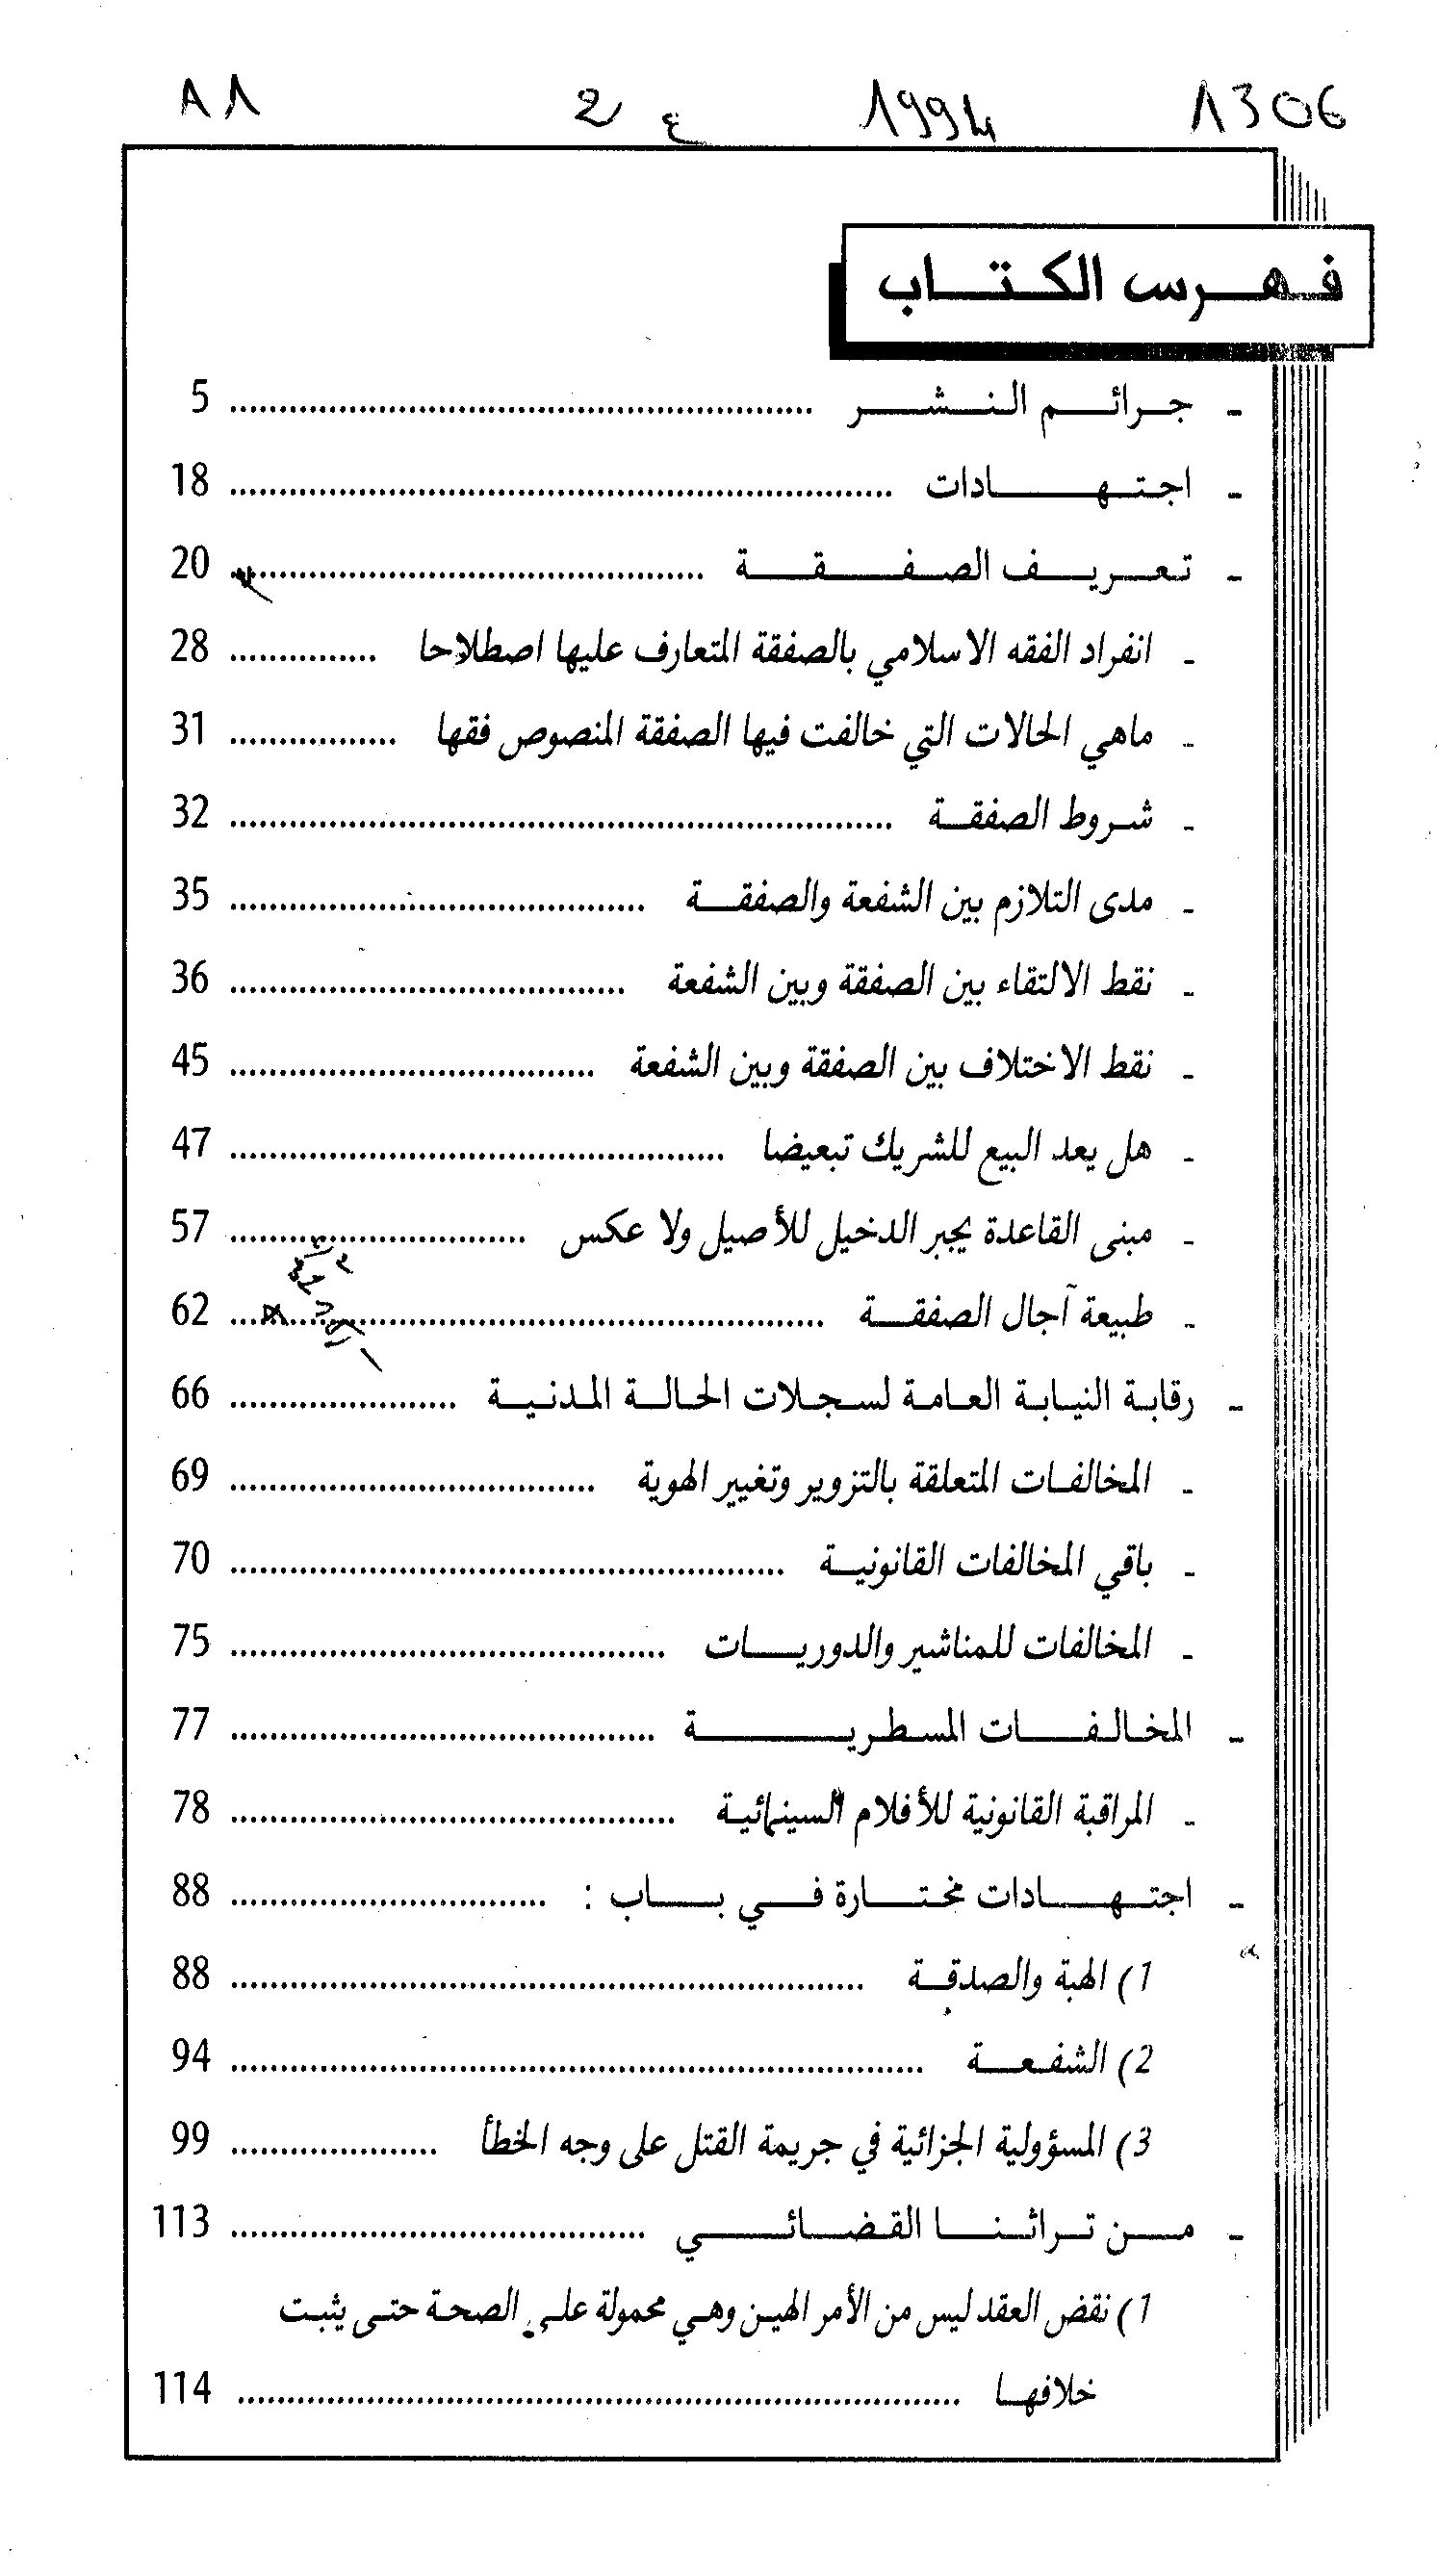 1306 1994 ع 2 A1
فهرس الكتاب
- جرائم النشر ........ 5
- اجتهادات ........ 18
- تعريف الصفقة ........ 20
- انفراد الفقه الاسلامي بالصفقة المتعارف عليها اصطلاحا ........ 28
- ماهي الحالات التي خالفت فيها الصفقة المنصوص فقها ........ 31
- شروط الصفقة ........ 32
- مدى التلازم بين الشفعة والصفقة ........ 35
- نقط الالتقاء بين الصفقة وبين الشفعة ........ 36
- نقط الاختلاف بين الصفقة وبين الشفعة ........ 45
- هل يعد البيع للشريك تبعيضا ........ 47
- مبنى القاعدة يجبر الدخيل للأصيل ولا عكس ........ 57
- طبيعة آجال الصفقة ........ 62
- رقابة النيابة العامة لسجلات الحالة المدنية ........ 66
- المخالفات المتعلقة بالتزوير وتغيير الهوية ........ 69
- باقي المخالفات القانونية ........ 70
- المخالفات للمناشير والدوريات ........ 75
- المخالفات المسطرية ........ 77
- المراقبة القانونية للأفلام السينمائية ........ 78
- اجتهادات مختارة في باب : ........ 88
1) الهبة والصدقة ........ 88
2) الشفعة ........ 94
3) المسؤولية الجزائية في جريمة القتل على وجه الخطأ ........ 99
- من تراثنا القضائي ........ 113
1) نقض العقد ليس من الأمر الهين وهي محمولة على الصحة حتى يثبت
خلافها ........ 114